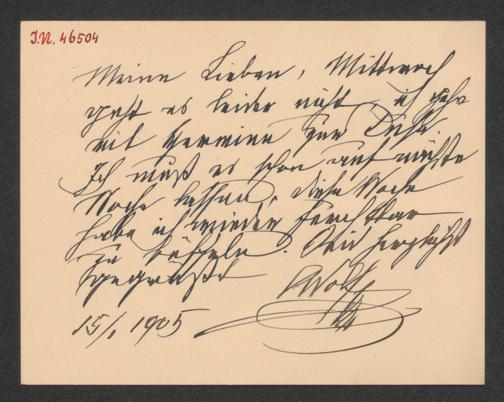 I.N. 46504
Meine Lieben, Mittwoch
geht es leider nicht, ich gehe
mit Hermine zur Duse.
Ich muß es schon auf nächste
Woche lassen, diese Woche
habe ich wieder furchtbar
zu büffeln. Seid herzlichst
gegrüßt
Wolf
15/1 1905